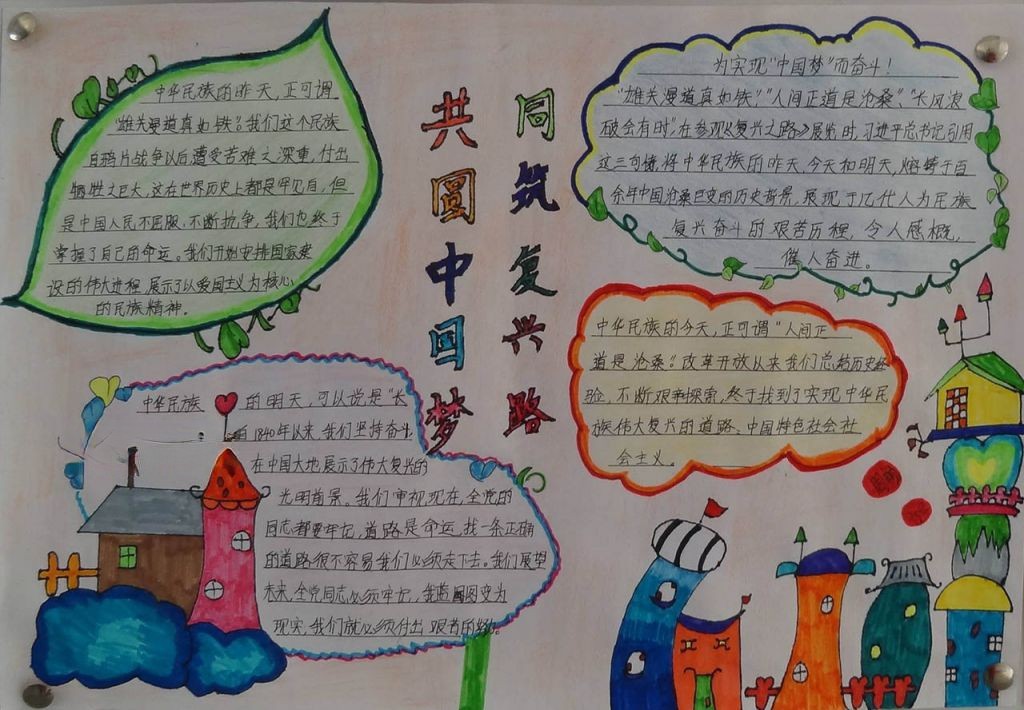 共圆中国梦
同筑复兴路
中华民族的昨天，正可谓
“雄关漫道真如铁”。我们这个民族
自鸦片战争以后遭受苦难之深重，付出
牺牲之巨大，这在世界历史上都是罕见自，但
是中国人民不屈服，不断抗争，我们也终于
掌握了自己的命运。我们开始安排国家建
设的伟大进程，展示了以爱国主义为核心
的民族精神。
为实现“中国梦”而奋斗！
“雄关漫道真如铁”，“人间正道是沧桑”、“长风浪
破会有时”，在参观《复兴之路》展览时，习近平总书记引用
这三句诗，将中华民族的昨天、今天和明天，熔铸于百
余年中国沧桑巨变的历史背景，展现于几代人为民族
复兴奋斗的艰苦历程，令人感概，
催人奋进。
中华民族的今天，正可谓“人间正
道是沧桑”。改革开放以来，我们总结历史经
验，不断艰辛探索，终于找到了实现中华民
族伟大复兴的道路、中国特色社会社
会主义。
中华民族的明天，可以说是“长
1840年以来，我们坚持奋斗
在中国大地展示了伟大复兴的
光明前景。我们审视现在，全党的
同志都要牢记，道路是命运，找一条正确
的道路很不容易我们必须走下去。我们展望
未来，全党同志必须牢记，我蓝图变为
现实，我们就必须付出艰苦的努力。